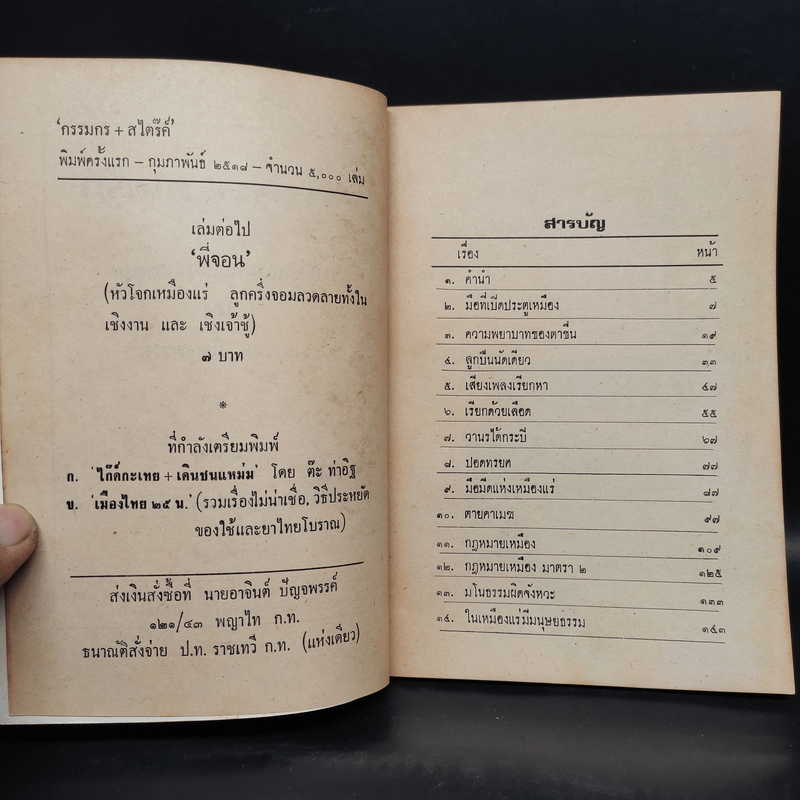 'กรรมกร + สไตร๊ค์'
พิมพ์ครั้งแรก – กุมภาพันธ์ ๒๕๑๘ – จำนวน ๕,๐๐๐ เล่ม
เล่มต่อไป
'พี่จอน'
(หัวโจกเหมืองแร่ ลูกครึ่งจอมลวดลายทั้งใน
เชิงงาน และ เชิงเจ้าชู้)
๗ บาท
*
ที่กำลังเตรียมพิมพ์
ก. 'ไก๊ด์กะเทย + เดินชนแหม่ม' โดย ต๊ะ ท่าอิฐ
ข. 'เมืองไทย ๒๕ น.' (รวมเรื่องไม่น่าเชื่อ, วิธีประหยัด
ของใช้และยาไทยโบราณ)
ส่งเงินสั่งซื้อที่ นายอาจินต์ ปัญจพรรค์
๑๒๑/๔๓ พญาไท ก.ท.
ธนาณัติสั่งจ่าย ป.ท. ราชเทวี ก.ท. (แห่งเดียว)
สารบัญ
เรื่อง หน้า
๑. คำนำ ๕
๒. มือที่เปิดประตูเหมือง ๗
๓. ความพยาบาทของตาชื่น ๑๙
๔. ลูกปืนนัดเดียว ๓๓
๕. เสียงเพลงเรียกหา ๔๗
๖. เรียกด้วยเลือด ๕๕
๗. วานรได้กระบี่ ๖๗
๘. ปอดทรยศ ๗๗
๙. มือมืดแห่งเหมืองแร่ ๘๗
๑๐. ตายคาเมฆ ๙๗
๑๑. กฎหมายเหมือง ๑๐๙
๑๒. กฎหมายเหมือง มาตรา ๒ ๑๒๕
๑๓. มโนธรรมผิดจังหวะ ๑๓๓
๑๔. ในเหมืองแร่มีมนุษยธรรม ๑๔๓